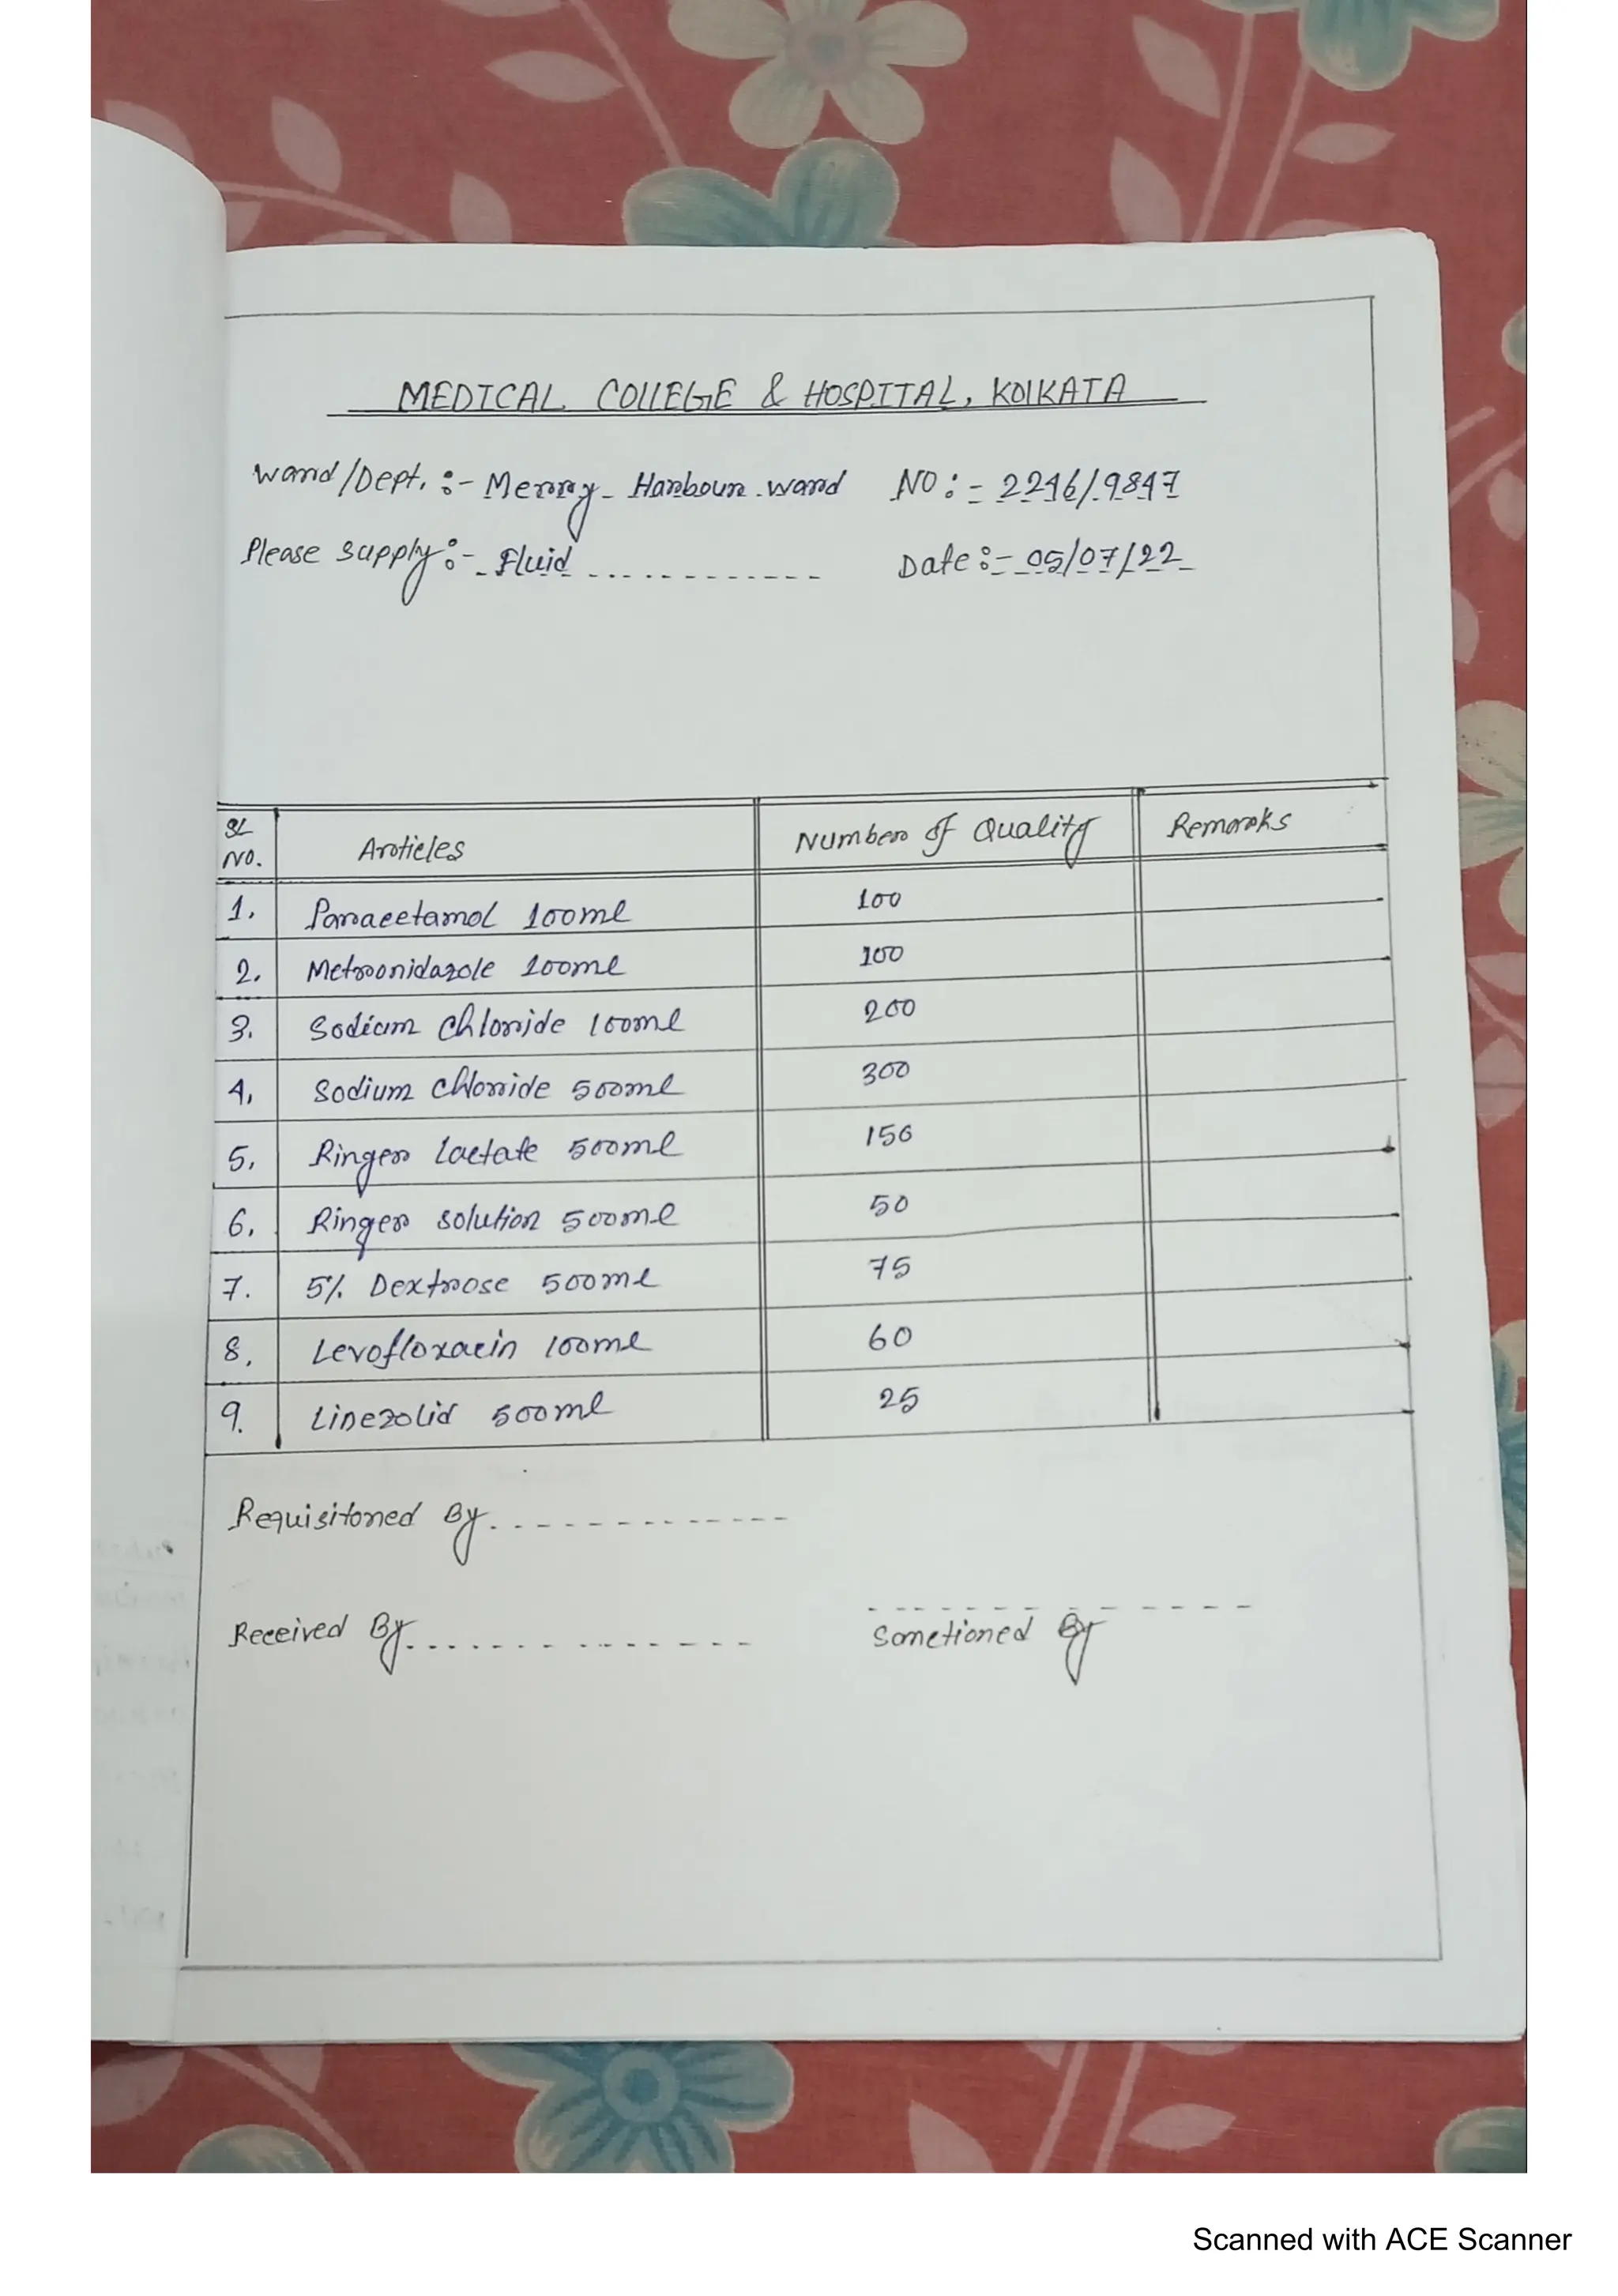 MEDICAL COLLEGE & HOSPITAL, KOLKATA
Ward/Dept. :- Merry Harbour ward NO :- 2246/9847
Please supply :- Fluid ............ Date :- 05/07/22
SL NO. Articles Number of Quality Remarks
1. Paracetamol 100ml 100
2. Metronidazole 100ml 100
3. Sodium chloride 100ml 200
4. Sodium chloride 500ml 300
5. Ringer lactate 500ml 150
6. Ringer solution 500ml 50
7. 5% Dextrose 500ml 75
8. Levofloxacin 100ml 60
9. Linezolid 500ml 25
Requisitoned By ..............
Received By ..............
Sanctioned By
Scanned with ACE Scanner